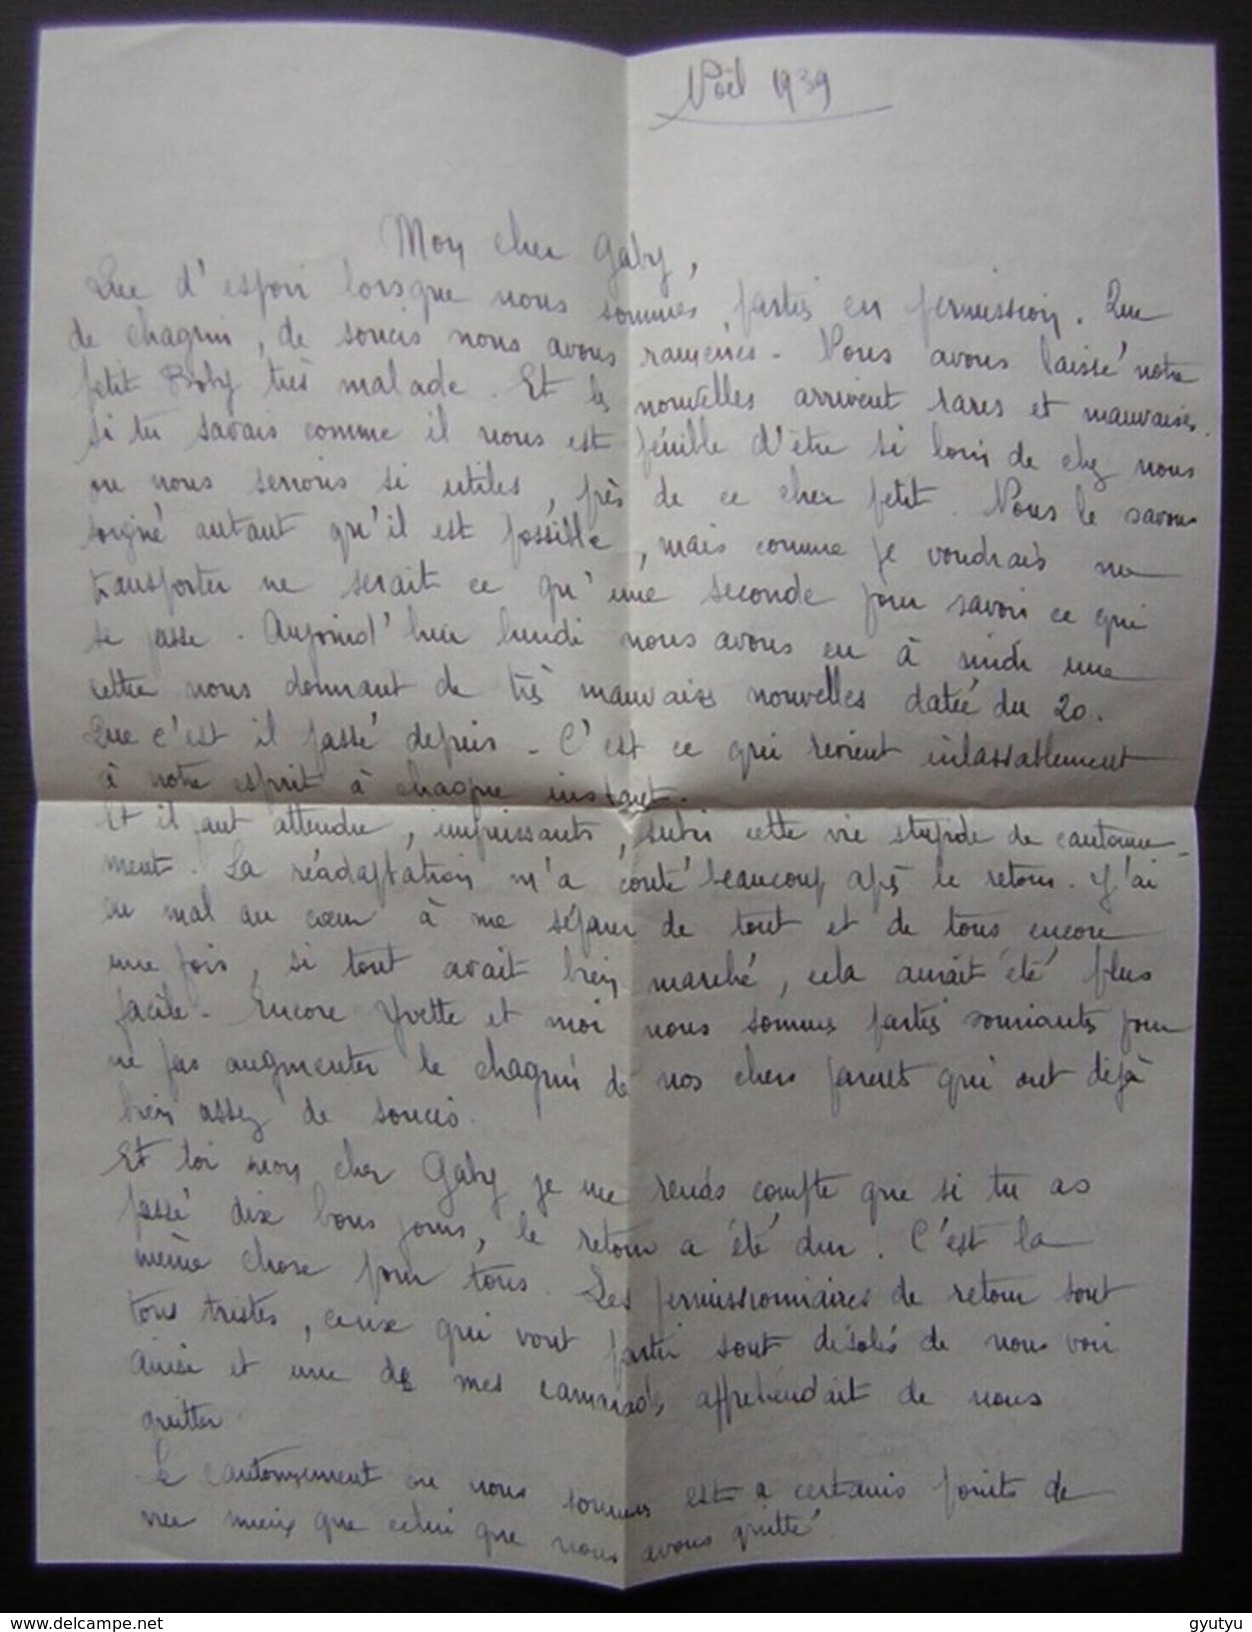 Noël 1939
Mon cher Gaby,
Que d'espoir lorsque nous sommes partis en permission. Que
de chagrin, de soucis nous avons ramenés - Nous avons laissé notre
petit Boby très malade. Et les nouvelles arrivent rares et mauvaises.
Si tu savais comme il nous est pénible d'être si loin de chez nous
ou nous serions si utiles, près de ce cher petit. Nous le savons
soigné autant qu'il est possible, mais comme je voudrais me
transporter ne serait ce qu'une seconde pour savoir ce qui
se passe. Aujourd'hui lundi nous avons eu à midi une
lettre nous donnant de très mauvaises nouvelles datée du 20.
Que c'est il passé depuis - C'est ce qui revient inlassablement
à notre esprit à chaque instant.
Et il faut attendre, impuissants, subir cette vie stupide de cantonne-
ment. La réadaptation m'a coûté beaucoup après le retour. J'ai
eu mal au cœur à me séparer de tout et de tous encore
une fois, si tout avait bien marché, cela aurait été plus
facile - Encore Yvette et moi nous sommes partis souriants pour
ne pas augmenter le chagrin de nos chers parents qui ont déjà
bien assez de soucis.
Et toi mon cher Gaby je me rends compte que si tu as
passé dix bons jours, le retour a été dur. C'est la
même chose pour tous. Les permissionnaires de retour sont
tous tristes, ceux qui vont partir sont désolés de nous voir
ainsi et une de mes camarades appréhendait de nous
quitter.
Le cantonnement ou nous sommes est a certains points de
vue mieux que celui que nous avons quitté
delcampe.net
gyutyu